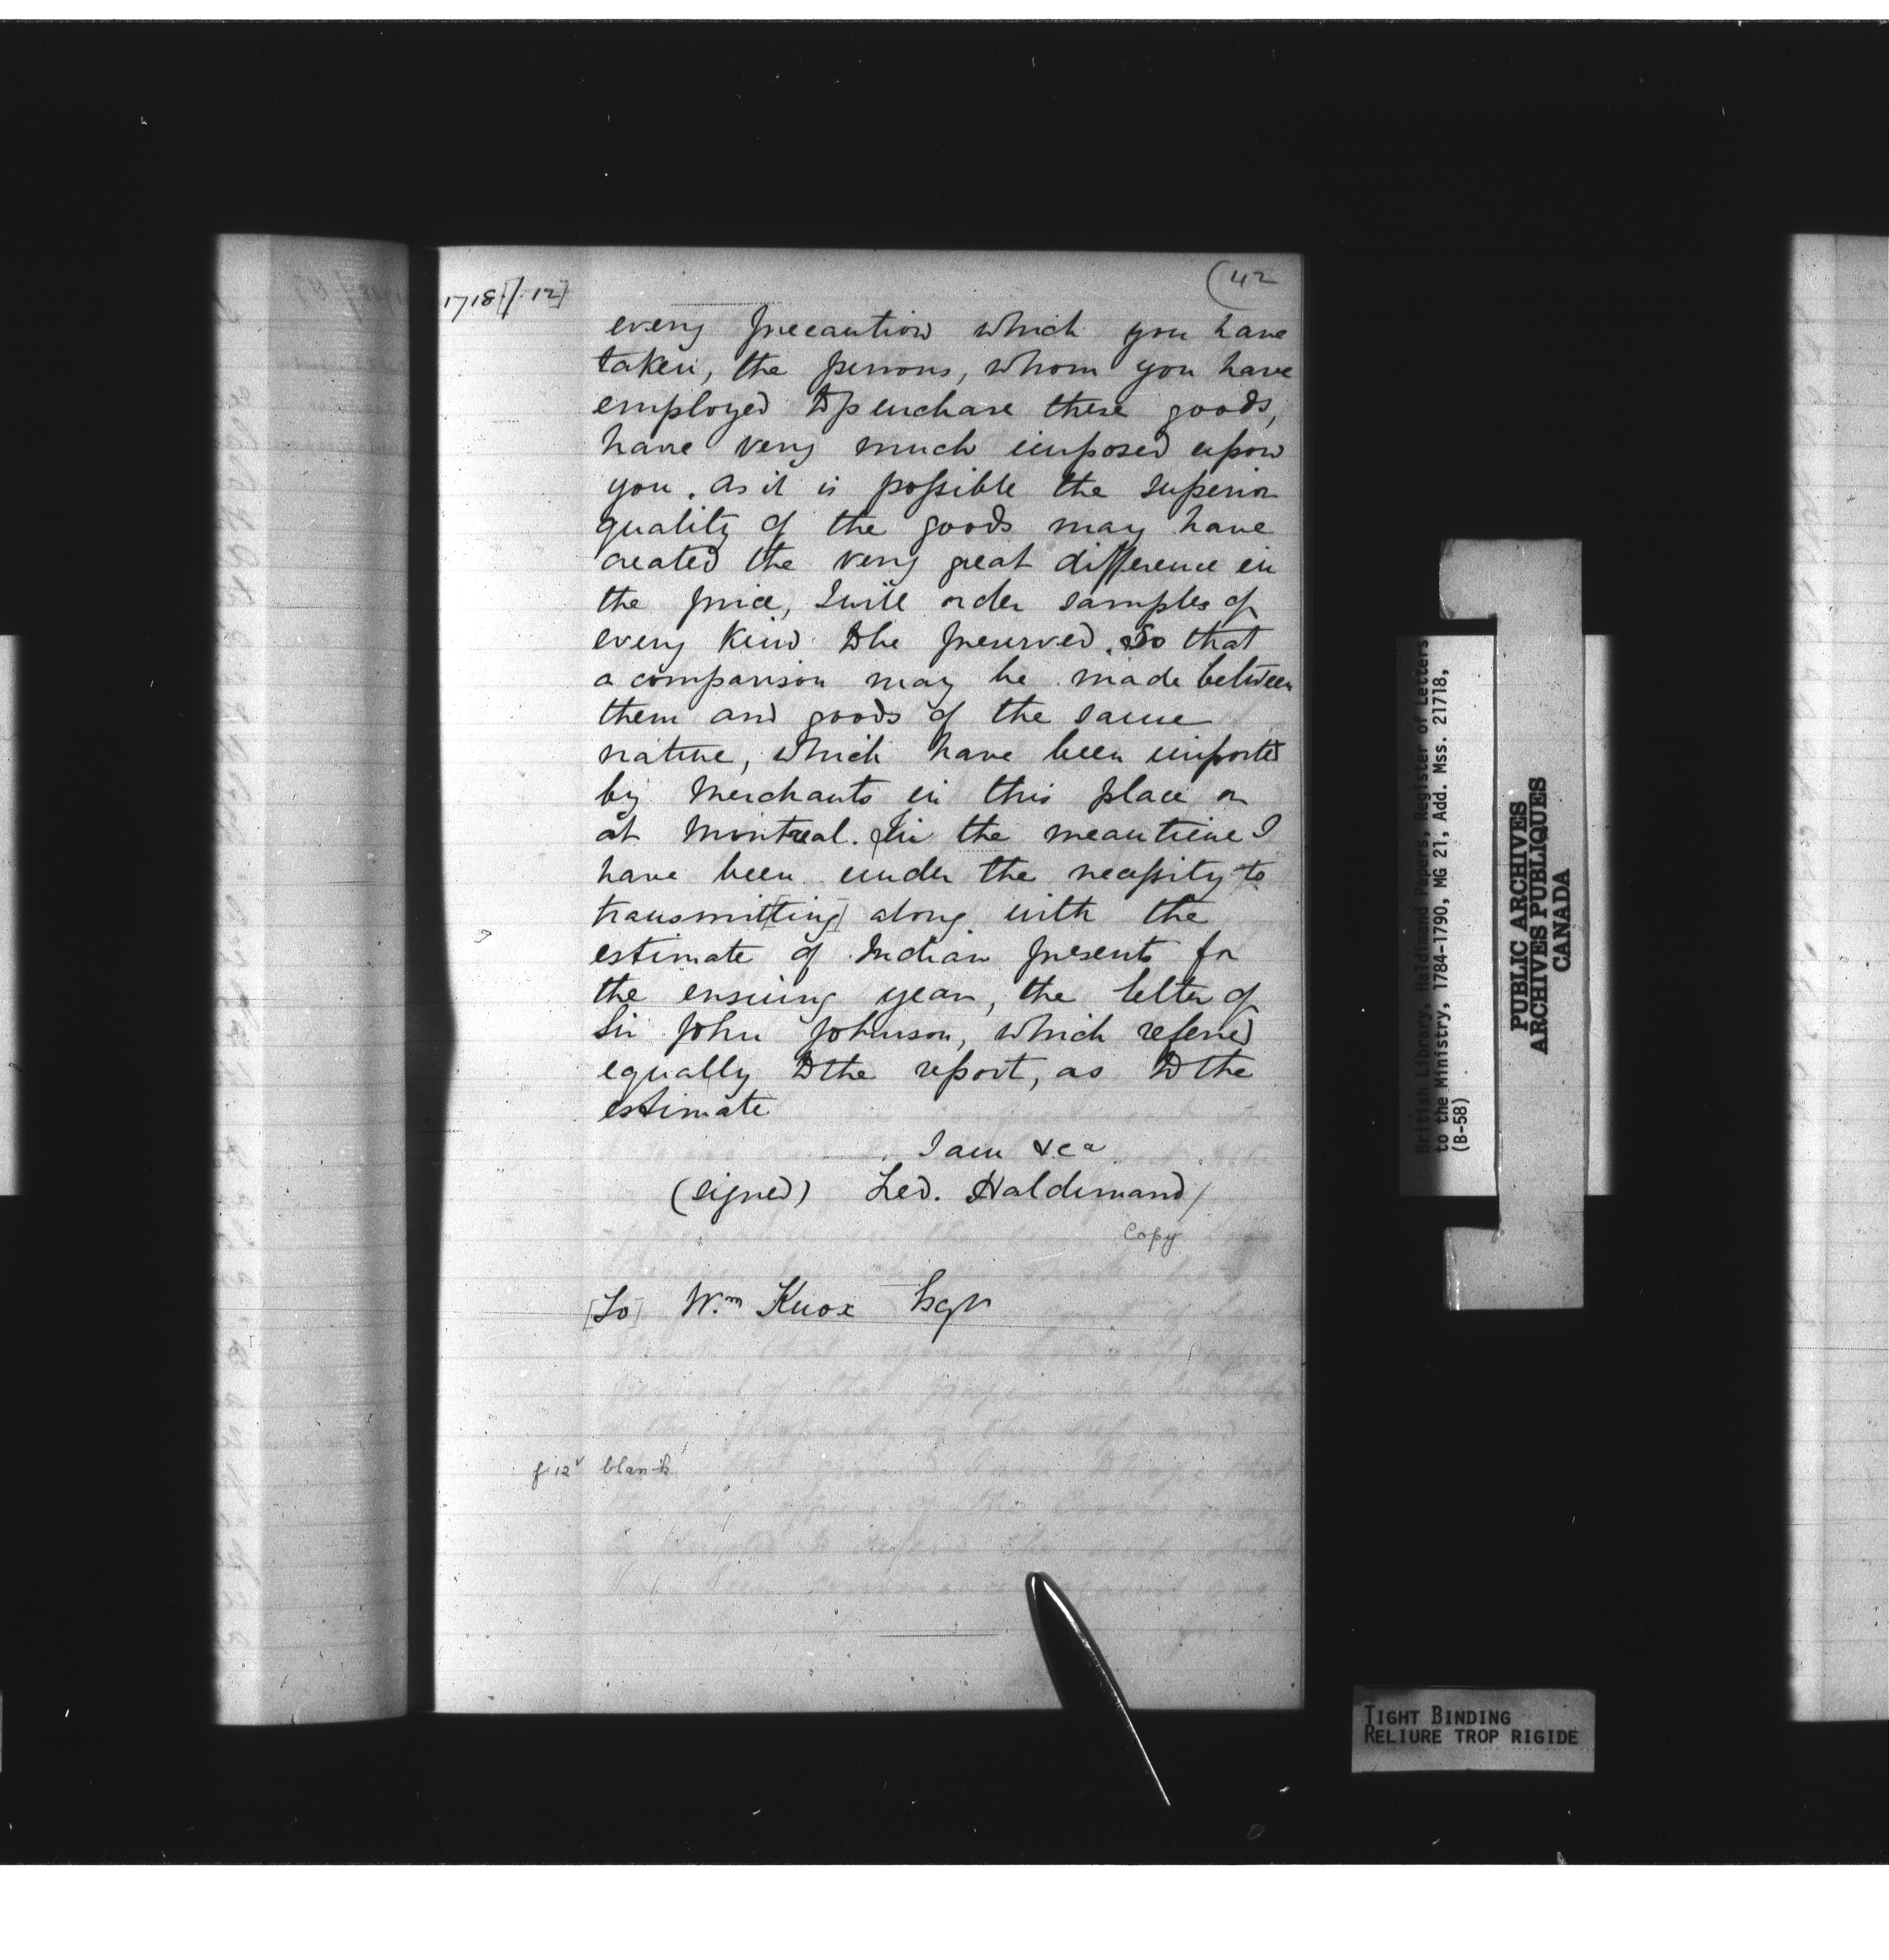 1718 [f. 12]
(42
every precaution which you have
taken, the persons, whom you have
employed to purchase these goods,
have very much imposed upon
you. As it is possible the superior
quality of the goods may have
created the very great difference in
the price, I will order samples of
every kind to be preserved. So that
a comparison may be made between
them and goods of the same
nature, which have been imported
by Merchants in this place or
at Montreal. In the meantime I
have been under the necessity to
transmit[ting] along with the
estimate of Indian presents for
the ensuing year, the letter of
Sir John Johnson, which referred
equally to the report, as to the
estimate
I am &ca
(signed) Fred. Haldimand/
Copy
[To] Wm Knox Esqr
f. 12v blank
British Library, Haldimand Papers, Register of Letters
to the Ministry, 1784-1790, MG 21, Add. Mss. 21718,
(B-58)
PUBLIC ARCHIVES
ARCHIVES PUBLIQUES
CANADA
TIGHT BINDING
RELIURE TROP RIGIDE